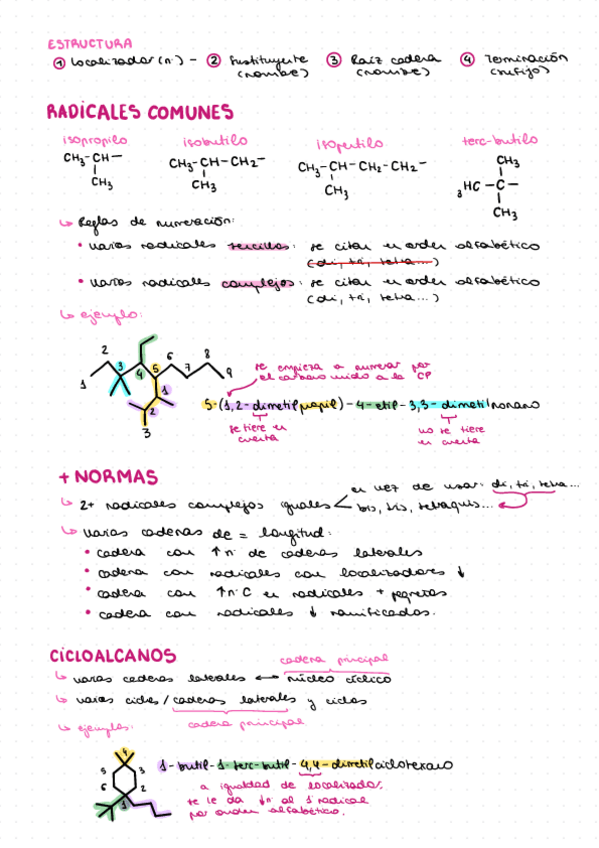 ESTRUCTURA
① localizador (nº) - ② sustituyente (nombre) ③ Raíz cadena (nombre) ④ Terminación (sufijo)
RADICALES COMUNES
isopropilo isobutilo isopentilo terc-butilo
CH₃-CH— CH₃-CH-CH₂— CH₃-CH-CH₂-CH₂— CH₃
CH₃ CH₃ CH₃ ₃HC-C—
CH₃
↳ Reglas de numeración:
• varios radicales sencillos: se citan en orden alfabético
(di, tri, tetra...)
• varios radicales complejos: se citan en orden alfabético
(di, tri, tetra...)
↳ ejemplo:
1 2 3 4 5 6 7 8 9
1 2 3
se empieza a numerar por
el carbono unido a la CP
5-(1,2-dimetilpropil)-4-etil-3,3-dimetilnonano
se tiene en
cuenta
no se tiene
en cuenta
+ NORMAS
↳ 2+ radicales complejos iguales < en vez de usar: di, tri, tetra...
bis, tris, tetraquis...
↳ varias cadenas de = longitud:
• cadena con ↑ nº de cadenas laterales
• cadena con radicales con localizadores ↓
• cadena con ↑ nº C en radicales + pequeños
• cadena con radicales ↓ ramificados.
CICLOALCANOS
cadena principal
↳ varias cadenas laterales ↔ núcleo cíclico
↳ varios ciclos / cadenas laterales y ciclos
cadena principal
↳ ejemplos:
4 5 3 6 2 1
1-butil-1-terc-butil-4,4-dimetilciclohexano
a igualdad de localizador,
se le da ↓n al 1º radical
por orden alfabético.